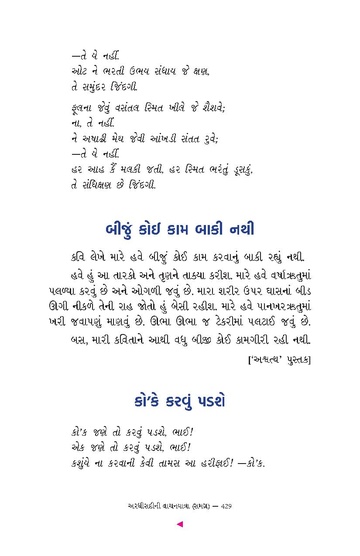 —તે યે નહીં.
ઓટ ને ભરતી ઉભય સંધાય જે ક્ષણ,
તે સમુંદર જિંદગી.
ફૂલના જેવું વસંતલ સ્મિત ખીલે જે શૈશવે;
ના, તે નહીં.
ને અષાઢી મેઘ જેવી આંખડી સંતત રુવે;
—તે યે નહીં.
હર આહ કૈં મલકી જતી, હર સ્મિત ભરંતું ડૂસકું,
તે સંધિક્ષણ છે જિંદગી.
બીજું કોઈ કામ બાકી નથી
કવિ લેખે મારે હવે બીજું કોઈ કામ કરવાનું બાકી રહ્યું નથી.
હવે હું આ તારકો અને તૃણને તાક્યા કરીશ. મારે હવે વર્ષાઋતુમાં
પલળ્યા કરવું છે અને ઓગળી જવું છે. મારા શરીર ઉપર ઘાસનાં બીડ
ઊગી નીકળે તેની રાહ જોતો હું બેસી રહીશ. મારે હવે પાનખરઋતુમાં
ખરી જવાપણું માણવું છે. ઊભા ઊભા જ ટેકરીમાં પલટાઈ જવું છે.
બસ, મારી કવિતાને આથી વધુ બીજી કોઈ કામગીરી રહી નથી.
['અશ્વત્થ' પુસ્તક]
કો'કે કરવું પડશે
કો'ક જણે તો કરવું પડશે, ભાઈ!
એક જણે તો કરવું પડશે, ભાઈ!
કશુંયે ના કરવાની કેવી તામસ આ હરીફાઈ! —કો'ક.
અરધીસદીની વાચનયાત્રા (સમગ્ર) — 429